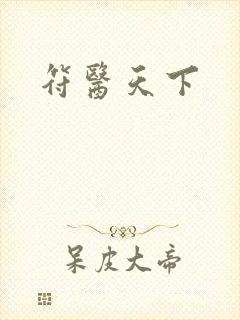 符醫天下
呆皮大帝